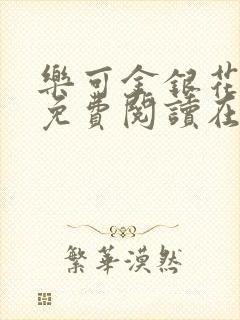 樂可金銀花
免費閱讀在
繁華漠然